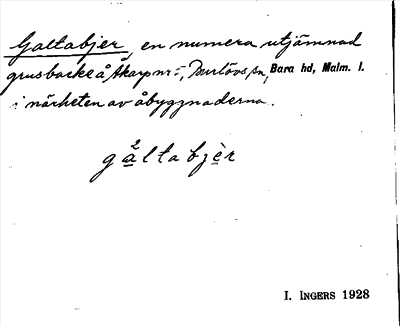 Galtabjer, en numera utjämnad
grusbacke å Åkarp nr =, Burlövs sn, Bara hd, Malm. l.
i närheten av åbyggnaderna.
gåltabjèr
I. INGERS 1928